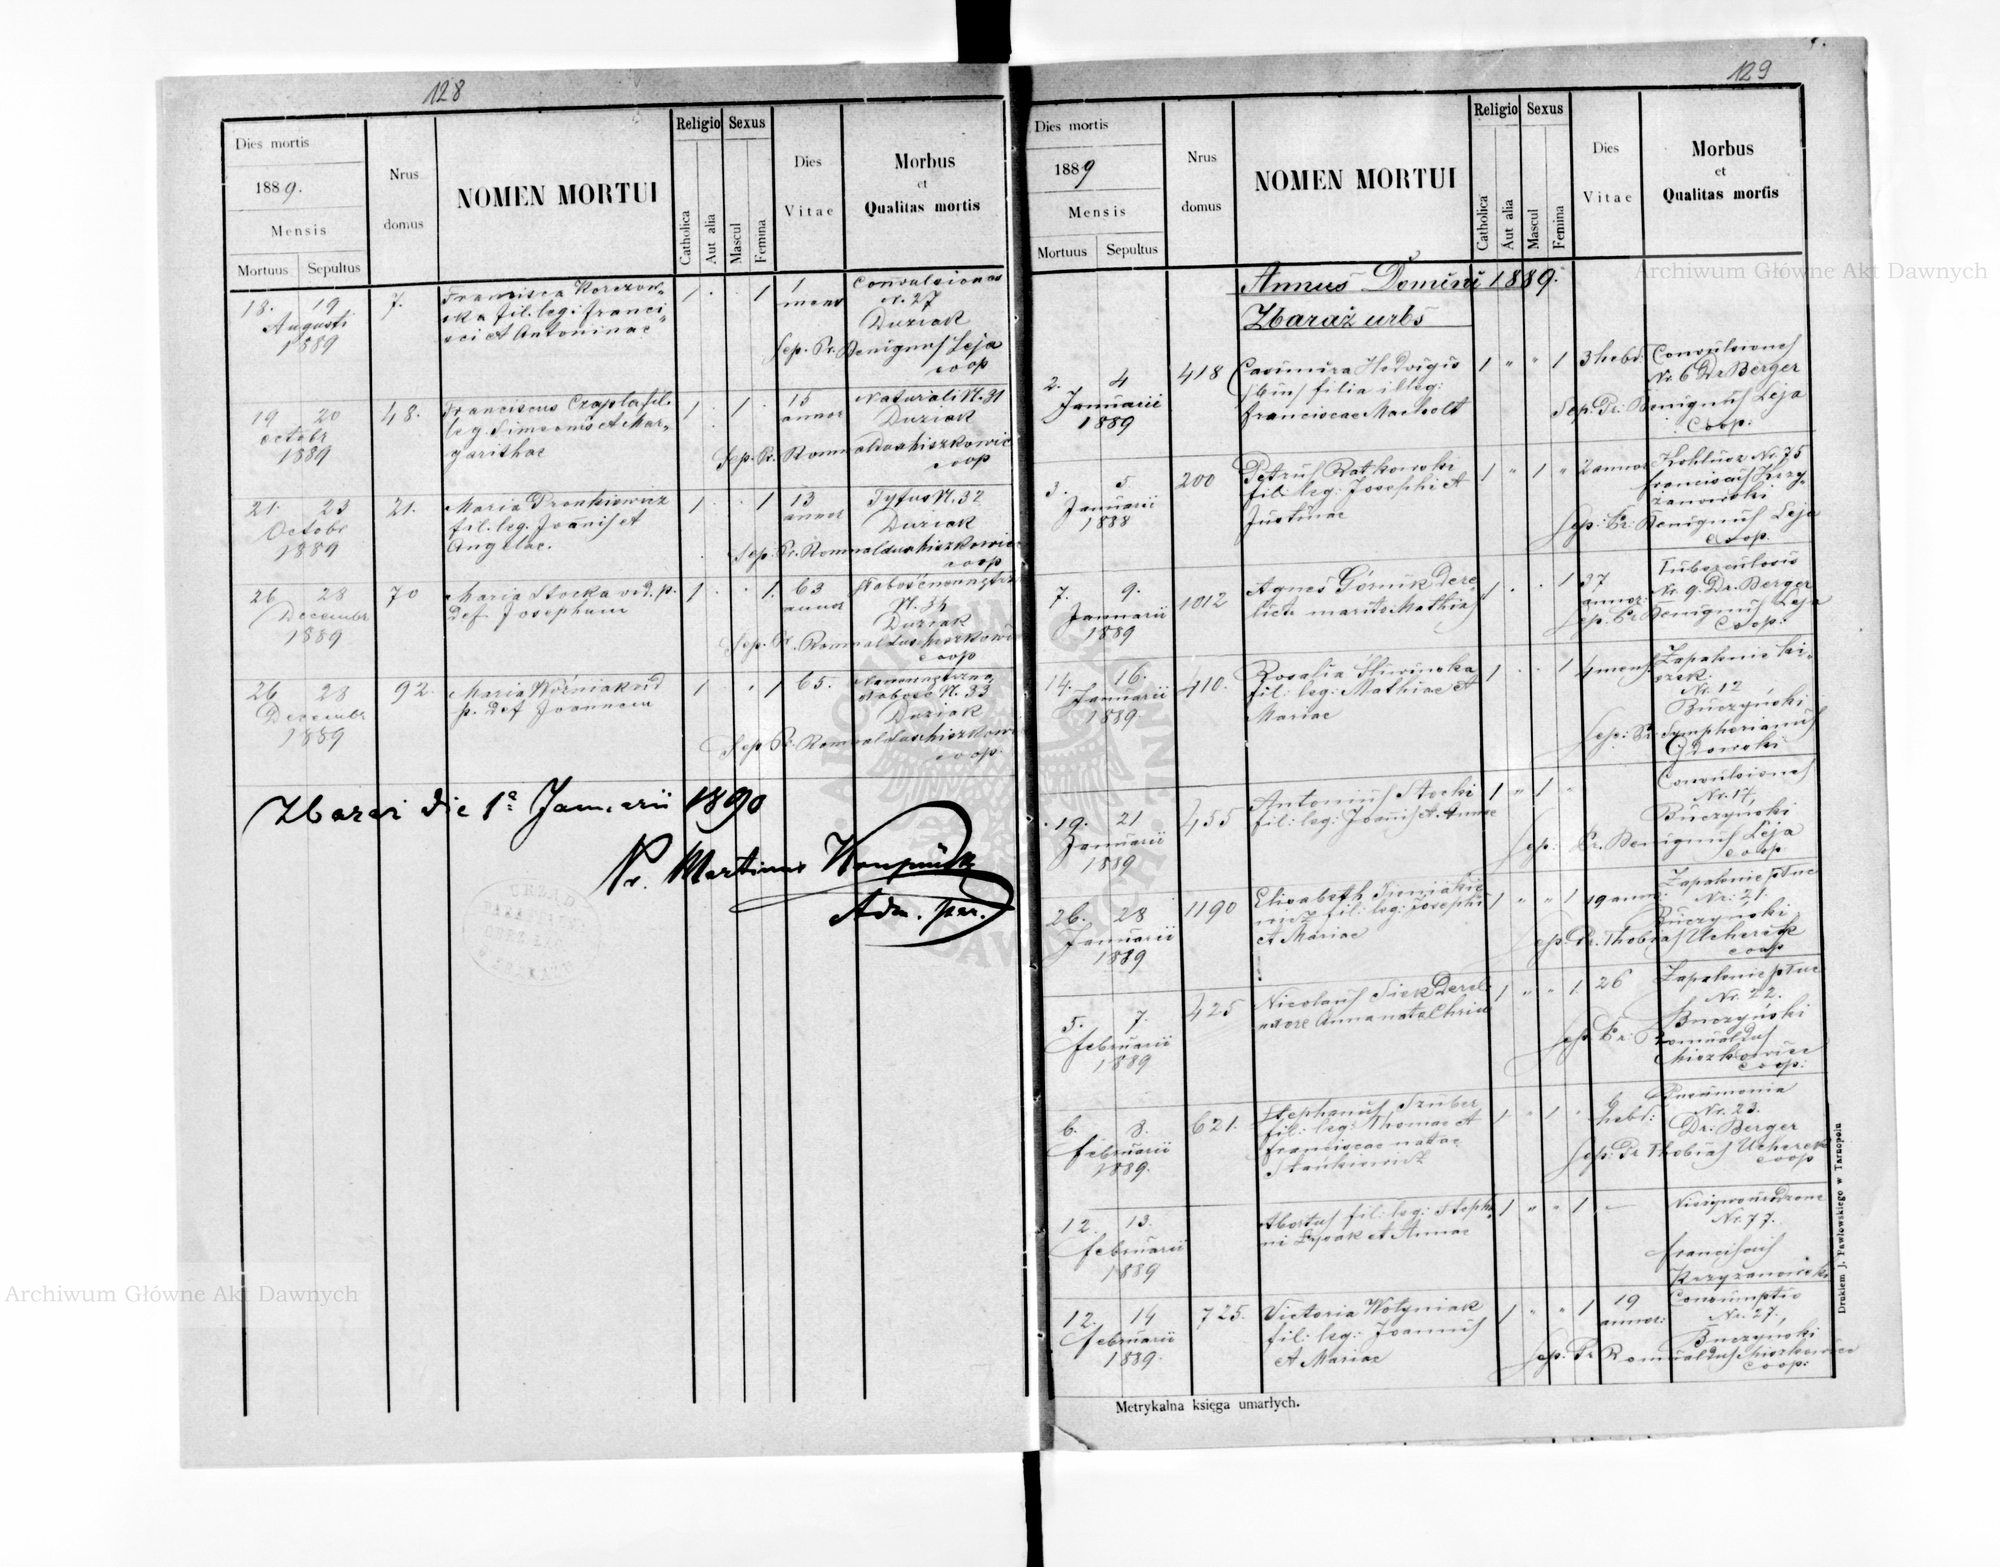 128
Dies mortis
1889.
Mensis
Mortuus Sepultus
Nrus
domus
NOMEN MORTUI
Religio
Catholica
Aut alia
Sexus
Mascul
Femina
Dies
Vitae
Morbus
et
Qualitas mortis
18. 19
Augusti
1889
7.
Francisca Korczow,,
ska fil. legi Franci,,
sci et Antoninae
1 . . 1
1
mens
Convulsiones
N. 27
Duziak
Sep. Pr. Benignus Leja
coop
19 20
octobr
1889
48.
Franciscus Czapla fil.
leg. Simeonis et Mar,,
garithae
1 . 1 .
15
annor
Naturali N. 31
Duziak
Sep. Pr. Romualdus
coop
21. 23
Octobr
1889
21.
Maria
fil. leg. Joanis et
Angelae.
1 . . 1
13
annor
Tyfus N. 32
Duziak
Sep. Pr. Romualdus
coop
26 28
Decembr
1889
70
Maria Stocka vid. p.
Def Josephum
1 . . 1.
63
annor
Duziak
Sep. Pr. Romualdus
coop
26 28
Decembr
1889
92.
Maria Woźniak vid
p. Def Joannem
1 . . 1
65.
N. 33
Duziak
Sep Pr. Romualdus
coop.
die 1a Januarii 1890
Martinus
Adm. par.
URZĄD
129
Dies mortis
1889
Mensis
Mortuus Sepultus
Nrus
domus
NOMEN MORTUI
Religio
Catholica
Aut alia
Sexus
Mascul
Femina
Dies
Vitae
Morbus
et
Qualitas mortis
Annus Domini 1889.
Zbaraż urbs
2. 4
Januarii
1889
418
Casimira Hedvigis
filia illeg:
Franciscae
1 " " 1
3 hebd:
Convulsiones
Nr 6 Dr Berger
Sep. Pr: Benignus Leja
Coop:
3. 5
Januarii
1888
200
Petrus Ratkowski
fil: leg: Josephi et
Justinae
1 " 1 "
2 annor
Nr. 75
Franciscus Krzy,,
żanowski
Sep: Pr: Benignus Leja
Coop.
7. 9.
Januarii
1889
1012
Agnes Górnik Dere,,
licta marito Mathia
1 . . 1
37
annor:
Tuberculosis
Nr. 9. Dr. Berger
Sep. Pr Benignus Leja
Coop:
14. 16.
Januarii
1889.
410.
Rosalia Śliwińska
fil: leg: Mathiae et
Mariae
1 . . 1
4 mens.
Zapalenie ki,,
szek:
Nr. 12
Buczyński
Sep: Pr: Symphorianus
19. 21
Januarii
1889
455
Antonius Stocki
fil: leg: Joanis et Annae
1 " 1 "
Convulsiones
Nr. 17,
Buczyński
Sep: Pr. Benignus Leja
coop
26. 28
Januarii
1889
1190
Elisabeth
fil: leg: Josephi
et Mariae
1 " " 1
19 annor:
Zapalenie płuc
Nr: 21.
Buczyński
Sep: Pr. Thobias Ucherek
coop
5. 7.
Februarii
1889
425
Nicolaus
uxore Anna nata
1 " " 1.
26
Zapalenie płuc
Nr. 22.
Buczyński
Sep: Pr: Romualdus
coop:
6. 8.
Februarii
1889.
621.
Stephanus
fil: leg: Thomae et
Franciscae natae
Stańkiewicz
1 " 1 "
hebd:
Pneumonia
Nr. 23.
Dr: Berger
Sep: Pr Thobias Ucherek
coop
12. 13.
Februarii
1889
Abortus fil: leg: Stepha,,
ni Łysak et Annae
1 " " 1
—
Nieżywourodzone
Nr. 77.
Francisus
Krzyżanowski
12. 14
Februarii
1889.
725.
Victoria Wołyniak
fil: leg: Joannis
et Mariae
1 " " 1
19
annor:
Consumptio
Nr. 27,
Buczyński
Sep: Pr Romualdus
coop:
Metrykalna księga umarłych.
Drukiem J. Pawłowskiego w Tarnopolu
Archiwum Główne Akt Dawnych
Archiwum Główne Akt Dawnych